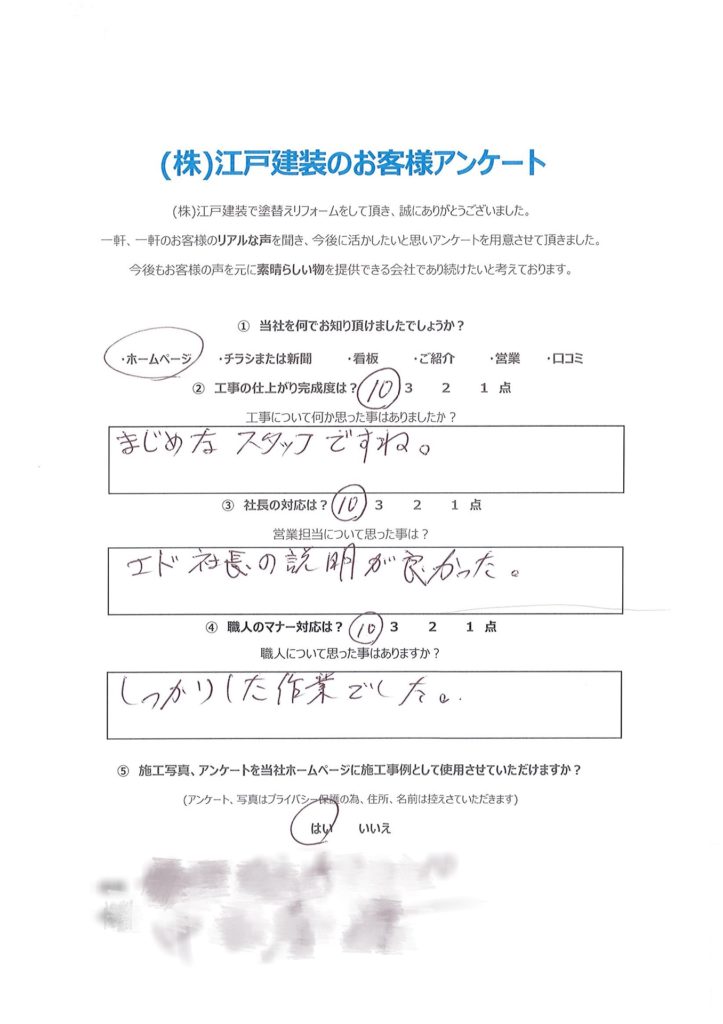 (株)江戸建装のお客様アンケート
(株)江戸建装で塗替えリフォームをして頂き、誠にありがとうございました。
一軒、一軒のお客様のリアルな声を聞き、今後に活かしたいと思いアンケートを用意させて頂きました。
今後もお客様の声を元に素晴らしい物を提供できる会社であり続けたいと考えております。
① 当社を何でお知り頂けましたでしょうか？
・ホームページ ・チラシまたは新聞 ・看板 ・ご紹介 ・営業 ・口コミ
② 工事の仕上がり完成度は？ 10 3 2 1 点
工事について何か思った事はありましたか？
まじめな スタッフですね。
③ 社長の対応は？ 10 3 2 1 点
営業担当について思った事は？
エド社長の説明が良かった。
④ 職人のマナー対応は？ 10 3 2 1 点
職人について思った事はありますか？
しっかりした作業でした。
⑤ 施工写真、アンケートを当社ホームページに施工事例として使用させていただけますか？
(アンケート、写真はプライバシー保護の為、住所、名前は控えさていただきます)
はい いいえ